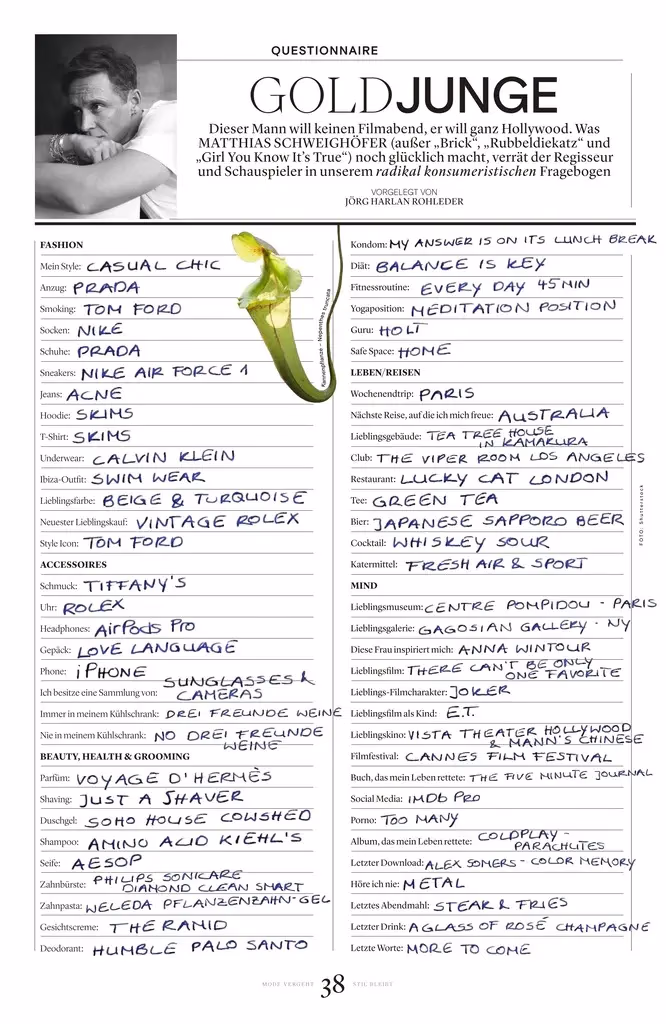 QUESTIONNAIRE
GOLDJUNGE
Dieser Mann will keinen Filmabend, er will ganz Hollywood. Was
MATTHIAS SCHWEIGHÖFER (außer „Brick“, „Rubbeldiekatz“ und
„Girl You Know It's True“) noch glücklich macht, verrät der Regisseur
und Schauspieler in unserem radikal konsumeristischen Fragebogen
VORGELEGT VON
JÖRG HARLAN ROHLEDER
FASHION
Mein Style: CASUAL CHIC
Anzug: PRADA
Smoking: TOM FORD
Socken: NIKE
Schuhe: PRADA
Sneakers: NIKE AIR FORCE 1
Jeans: ACNE
Hoodie: SKIMS
T-Shirt: SKIMS
Underwear: CALVIN KLEIN
Ibiza-Outfit: SWIM WEAR
Lieblingsfarbe: BEIGE & TURQUOISE
Neuester Lieblingskauf: VINTAGE ROLEX
Style Icon: TOM FORD
ACCESSOIRES
Schmuck: TIFFANY'S
Uhr: ROLEX
Headphones: AirPods Pro
Gepäck: LOVE LANGUAGE
Phone: iPHONE
Ich besitze eine Sammlung von: SUNGLASSES &
CAMERAS
Immer in meinem Kühlschrank: DREI FREUNDE WEINE
Nie in meinem Kühlschrank: NO DREI FREUNDE
WEINE
BEAUTY, HEALTH & GROOMING
Parfüm: VOYAGE D'HERMÈS
Shaving: JUST A SHAVER
Duschgel: SOHO HOUSE COWSHED
Shampoo: AMINO ACID KIEHL'S
Seife: AESOP
Zahnbürste: PHILIPS SONICARE
DIAMOND CLEAN SMART
Zahnpasta: WELEDA PFLANZENZAHN-GEL
Gesichtscreme: THERAMID
Deodorant: HUMBLE PALO SANTO
Kannenpflanze – Nepenthes truncata
Kondom: MY ANSWER IS ON ITS LUNCH BREAK
Diät: BALANCE IS KEY
Fitnessroutine: EVERY DAY 45 MIN
Yogaposition: MEDITATION POSITION
Guru: HOLT
Safe Space: HOME
LEBEN/REISEN
Wochenendtrip: PARIS
Nächste Reise, auf die ich mich freue: AUSTRALIA
Lieblingsgebäude: TEA TREE HOUSE
IN KAMAKURA
Club: THE VIPER ROOM LOS ANGELES
Restaurant: LUCKY CAT LONDON
Tee: GREEN TEA
Bier: JAPANESE SAPPORO BEER
Cocktail: WHISKEY SOUR
Katermittel: FRESH AIR & SPORT
MIND
Lieblingsmuseum: CENTRE POMPIDOU - PARIS
Lieblingsgalerie: GAGOSIAN GALLERY - NY
Diese Frau inspiriert mich: ANNA WINTOUR
Lieblingsfilm: THERE CAN'T BE ONLY
ONE FAVORITE
Lieblings-Filmcharakter: JOKER
Lieblingsfilm als Kind: E.T.
Lieblingskino: VISTA THEATER HOLLYWOOD
& MANN'S CHINESE
Filmfestival: CANNES FILM FESTIVAL
Buch, das mein Leben rettete: THE FIVE MINUTE JOURNAL
Social Media: IMDb PRO
Porno: TOO MANY
Album, das mein Leben rettete: COLDPLAY -
PARACHUTES
Letzter Download: ALEX SOMERS - COLOR MEMORY
Höre ich nie: METAL
Letztes Abendmahl: STEAK & FRIES
Letzter Drink: A GLASS OF ROSÉ CHAMPAGNE
Letzte Worte: MORE TO COME
FOTO: Shutterstock
MODE VERGEHT 38 STIL BLEIBT